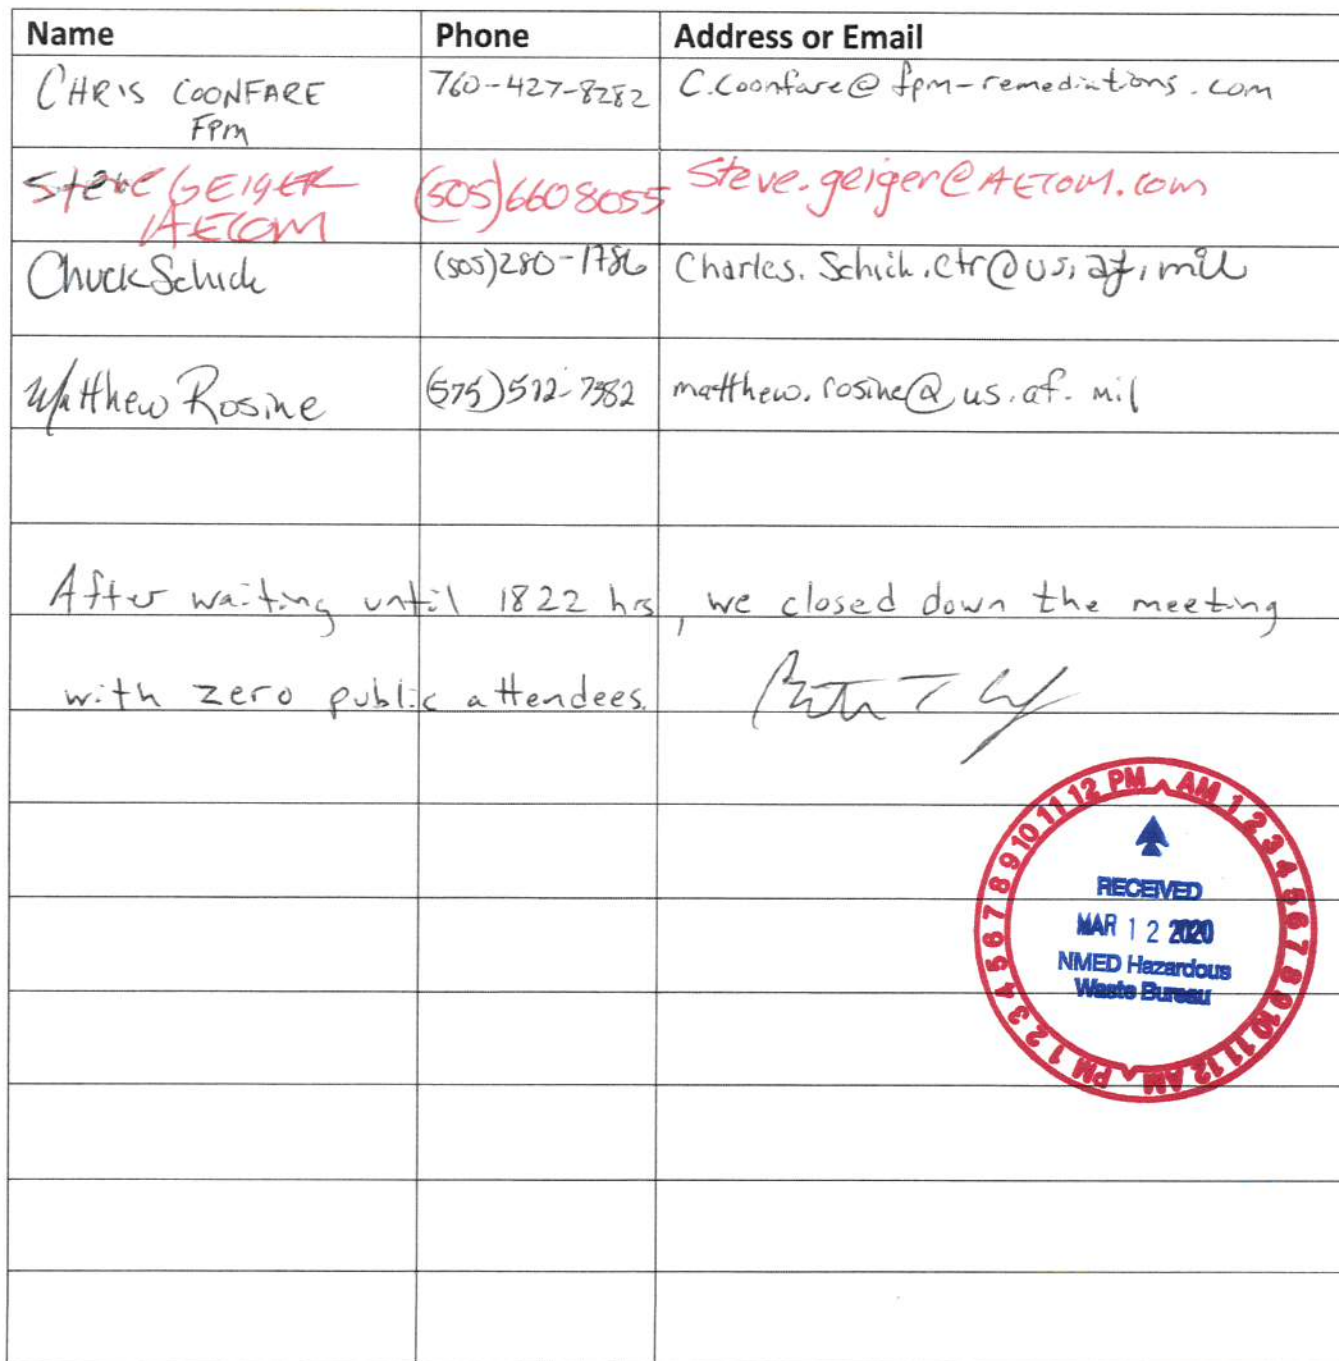 Name Phone Address or Email
CHRIS COONFARE 760-427-8282 C.Coonfare@fpm-remediations.com
FPM
Steve GEIGER (505)6608055 Steve.geiger@AECOM.com
AECOM
Chuck Schick (505)280-1786 Charles.Schick.ctr@us.af.mil
Matthew Rosine (575)572-7382 matthew.rosine@us.af.mil
After waiting until 1822 hrs, we closed down the meeting
with zero public attendees.
12 PM AM 1 2 3 4 5 6 7 8 9 10 11 12 AM PM 1 2 3 4 5 6 7 8 9 10 11
RECEIVED
MAR 12 2020
NMED Hazardous
Waste Bureau